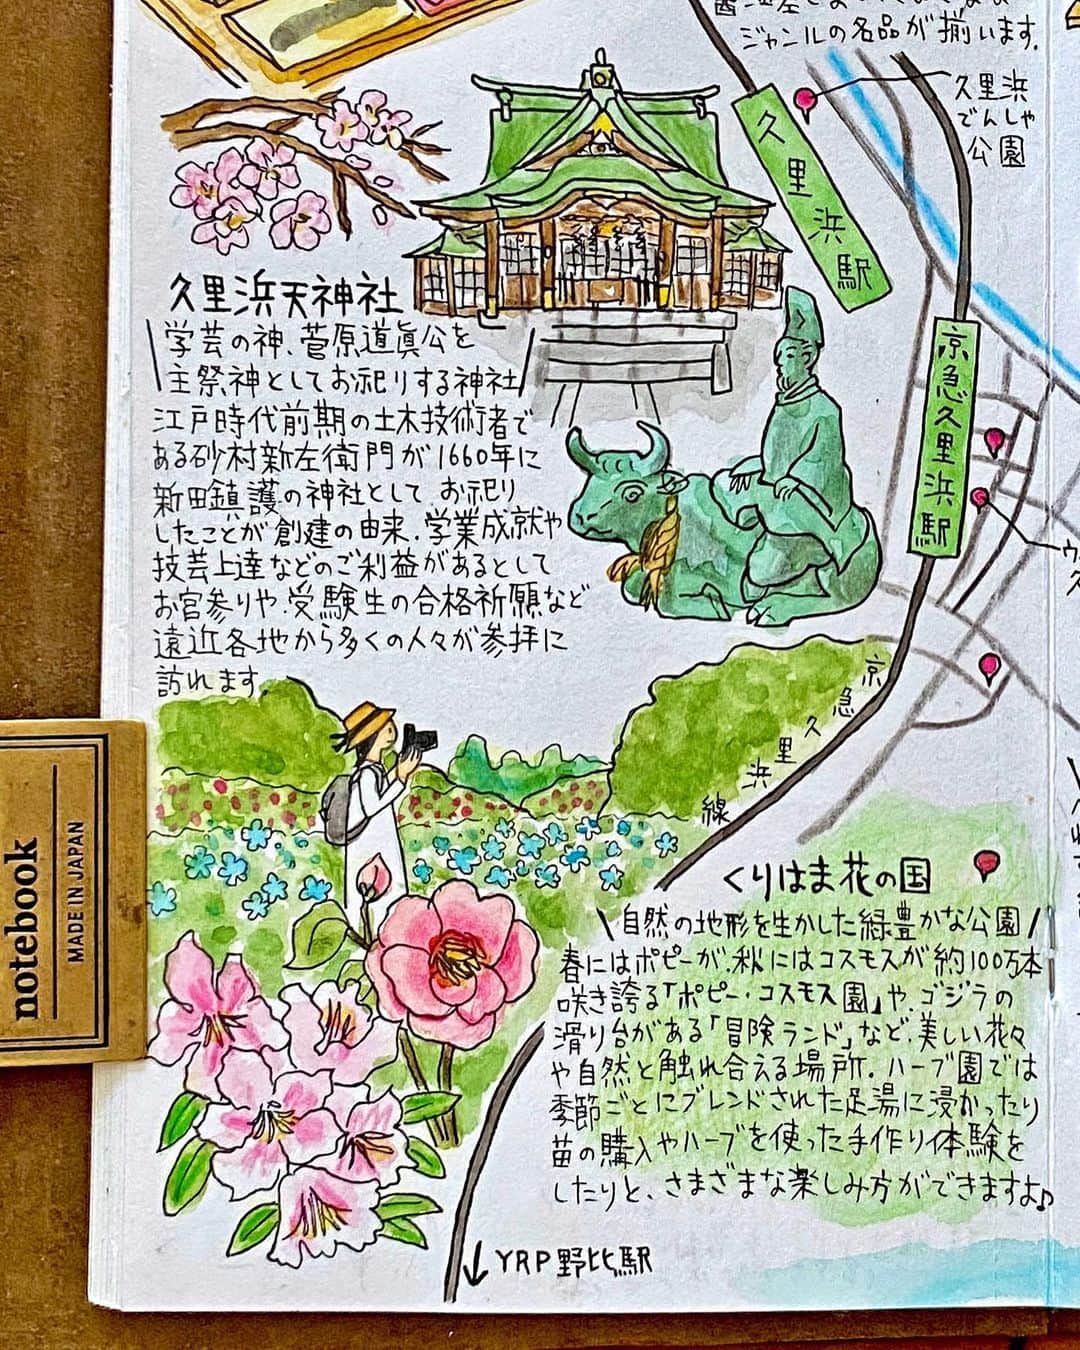 ジャンルの名品が揃います.
久里浜
でんしゃ
公園
久里浜駅
京急久里浜駅
久里浜天神社
学芸の神、菅原道眞公を
主祭神としてお祀りする神社
江戸時代前期の土木技術者で
ある砂村新左衛門が1660年に
新田鎮護の神社として お祀り
したことが創建の由来.学業成就や
技芸上達などのご利益があるとして
お宮参りや、受験生の合格祈願など
遠近各地から多くの人々が参拝に
訪れます.
京急久里浜線
くりはま花の国
自然の地形を生かした緑豊かな公園
春にはポピーが、秋にはコスモスが約100万本
咲き誇る「ポピー・コスモス園」や、ゴジラの
滑り台がある「冒険ランド」など、美しい花々
や自然と触れ合える場所.ハーブ園では
季節ごとにブレンドされた足湯に浸かったり
苗の購入やハーブを使った手作り体験を
したりと、さまざまな楽しみ方ができますよ♪
↓YRP野比駅
notebook
MADE IN JAPAN